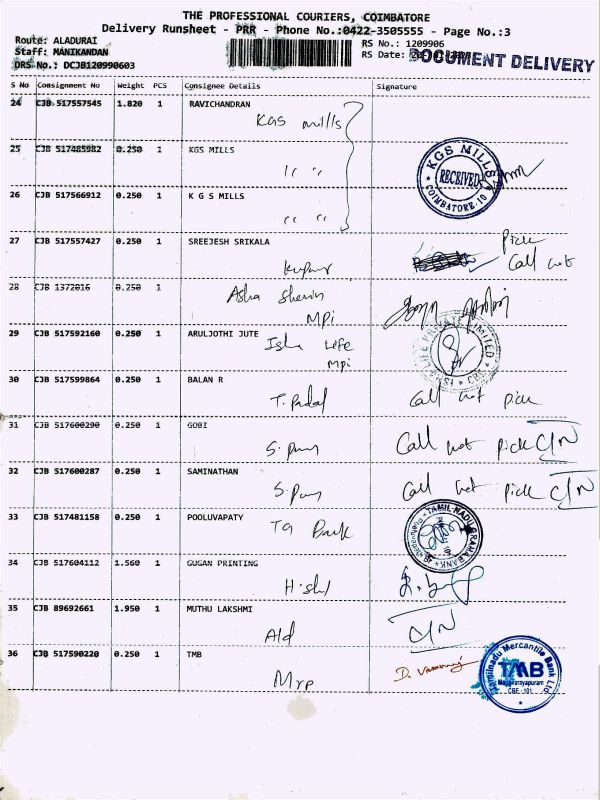 THE PROFESSIONAL COURIERS, COIMBATORE
Delivery Runsheet - PRR - Phone No.:0422-3505555 - Page No.:3
Route: ALADURAI
Staff: MANIKANDAN
DRS No.: DCJB120990603
RS No.: 1209906
RS Date:
DOCUMENT DELIVERY
S No Consignment No Weight PCS Consignee Details Signature
24 CJB 517557545 1.820 1 RAVICHANDRAN
KGS mills
25 CJB 517485982 0.250 1 KGS MILLS
" "
KGS MILLS
RECEIVED
COIMBATORE-10
26 CJB 517566912 0.250 1 K G S MILLS
" "
27 CJB 517557427 0.250 1 SREEJESH SRIKALA
Pick
Call not
28 CJB 1372016 0.250 1
Asha
MPi
29 CJB 517592160 0.250 1 ARULJOTHI JUTE
Isha Life
Mpi
LIFE PRIVATE LIMITED
30 CJB 517599864 0.250 1 BALAN R
Call not pick
31 CJB 517600290 0.250 1 GOBI
Call not pick C/N
32 CJB 517600287 0.250 1 SAMINATHAN
Call not pick C/N
33 CJB 517481158 0.250 1 POOLUVAPATY
TG Bank
TAMIL NADU GRAMA BANK
34 CJB 517604112 1.560 1 GUGAN PRINTING
35 CJB 89692661 1.950 1 MUTHU LAKSHMI
Ald
C/N
36 CJB 517590220 0.250 1 TMB
Mrp
Tamilnadu Mercantile Bank Ltd
TMB
CBE-101